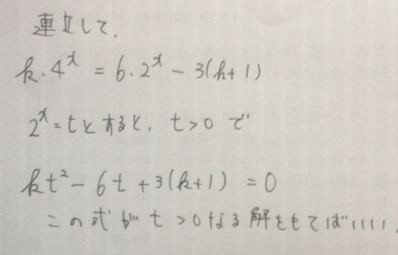 連立して.
k・4^x = 6・2^x - 3(k+1)
2^x = t とすると, t > 0 で
kt² - 6t + 3(k+1) = 0
この式が t > 0 なる解をもてばいい.